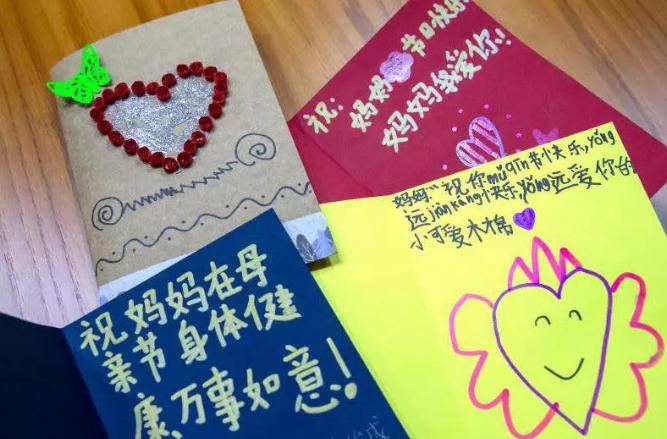 祝: 妈妈 节日快
妈妈我爱你!
妈妈:“祝你mǔqīn节快乐,yǒng
远jiànkāng快乐,yǒng远爱你的
小可爱木棉
祝妈妈在母
亲节身体健
康,万事如意!